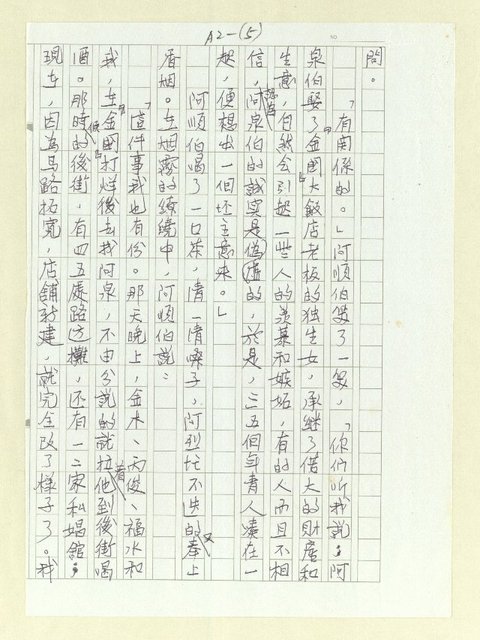 A2-(5)
問。
「有關係的。」阿順伯笑了一笑,「你們听我說,阿
泉伯娶了『金國』大飯店老板的独生女,承継了偌大的財產和
生意,自然会引起一些人的羨慕和嫉妬,有的人而且不相
信,認為阿泉伯的誠實是偽的,於是,三五個年青人湊在一
起,便想出一個坯主意來。」
阿順伯喝了一口茶,清一清嗓子,阿烈忙不迭的又奉上
香烟。在烟霧的繚繞中,阿順伯說:
「這件事我也有份。那天晚上,金木、天俊、福水和
我,在『金國』打烊後去找阿泉,不由分說的就拉着他到後街喝
酒。那時候的後街,有四五處路边攤,还有一二家私娼館;
現在,因為馬路拓寬,店舖新建,就完全改了樣子了。我